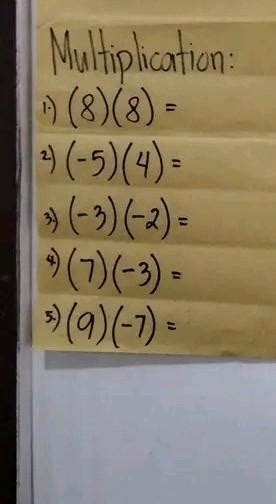 Multiplication:
1.) (8)(8) =
2.) (-5)(4) =
3.) (-3)(-2) =
4.) (7)(-3) =
5.) (9)(-7) =